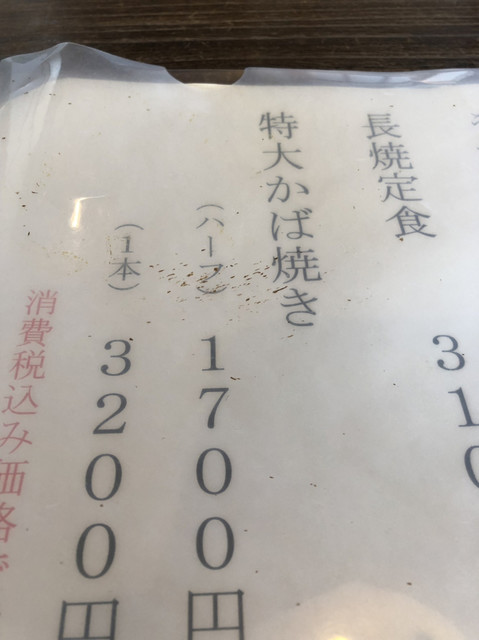 長焼定食
310
特大かば焼き
（ハーフ）1700円
（1本）3200円
消費税込み価格で